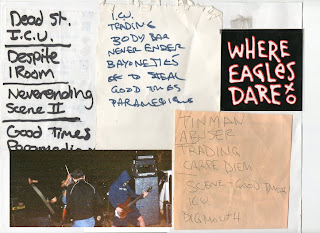 Dead St.
I.C.U.
Despite
1 Room
Neverending
Scene II
Good Times
I.C.U.
TRADING
BODY BAR
NEVER ENDER
BAYONETIES
TO STEAL
GOOD TIMES
WHERE
EAGLES
DARE
XO
TINMAN
ABUSER
TRADING
CARPE DIEM
SCENE + GOOD TIMES
ICU
BIGMOUTH